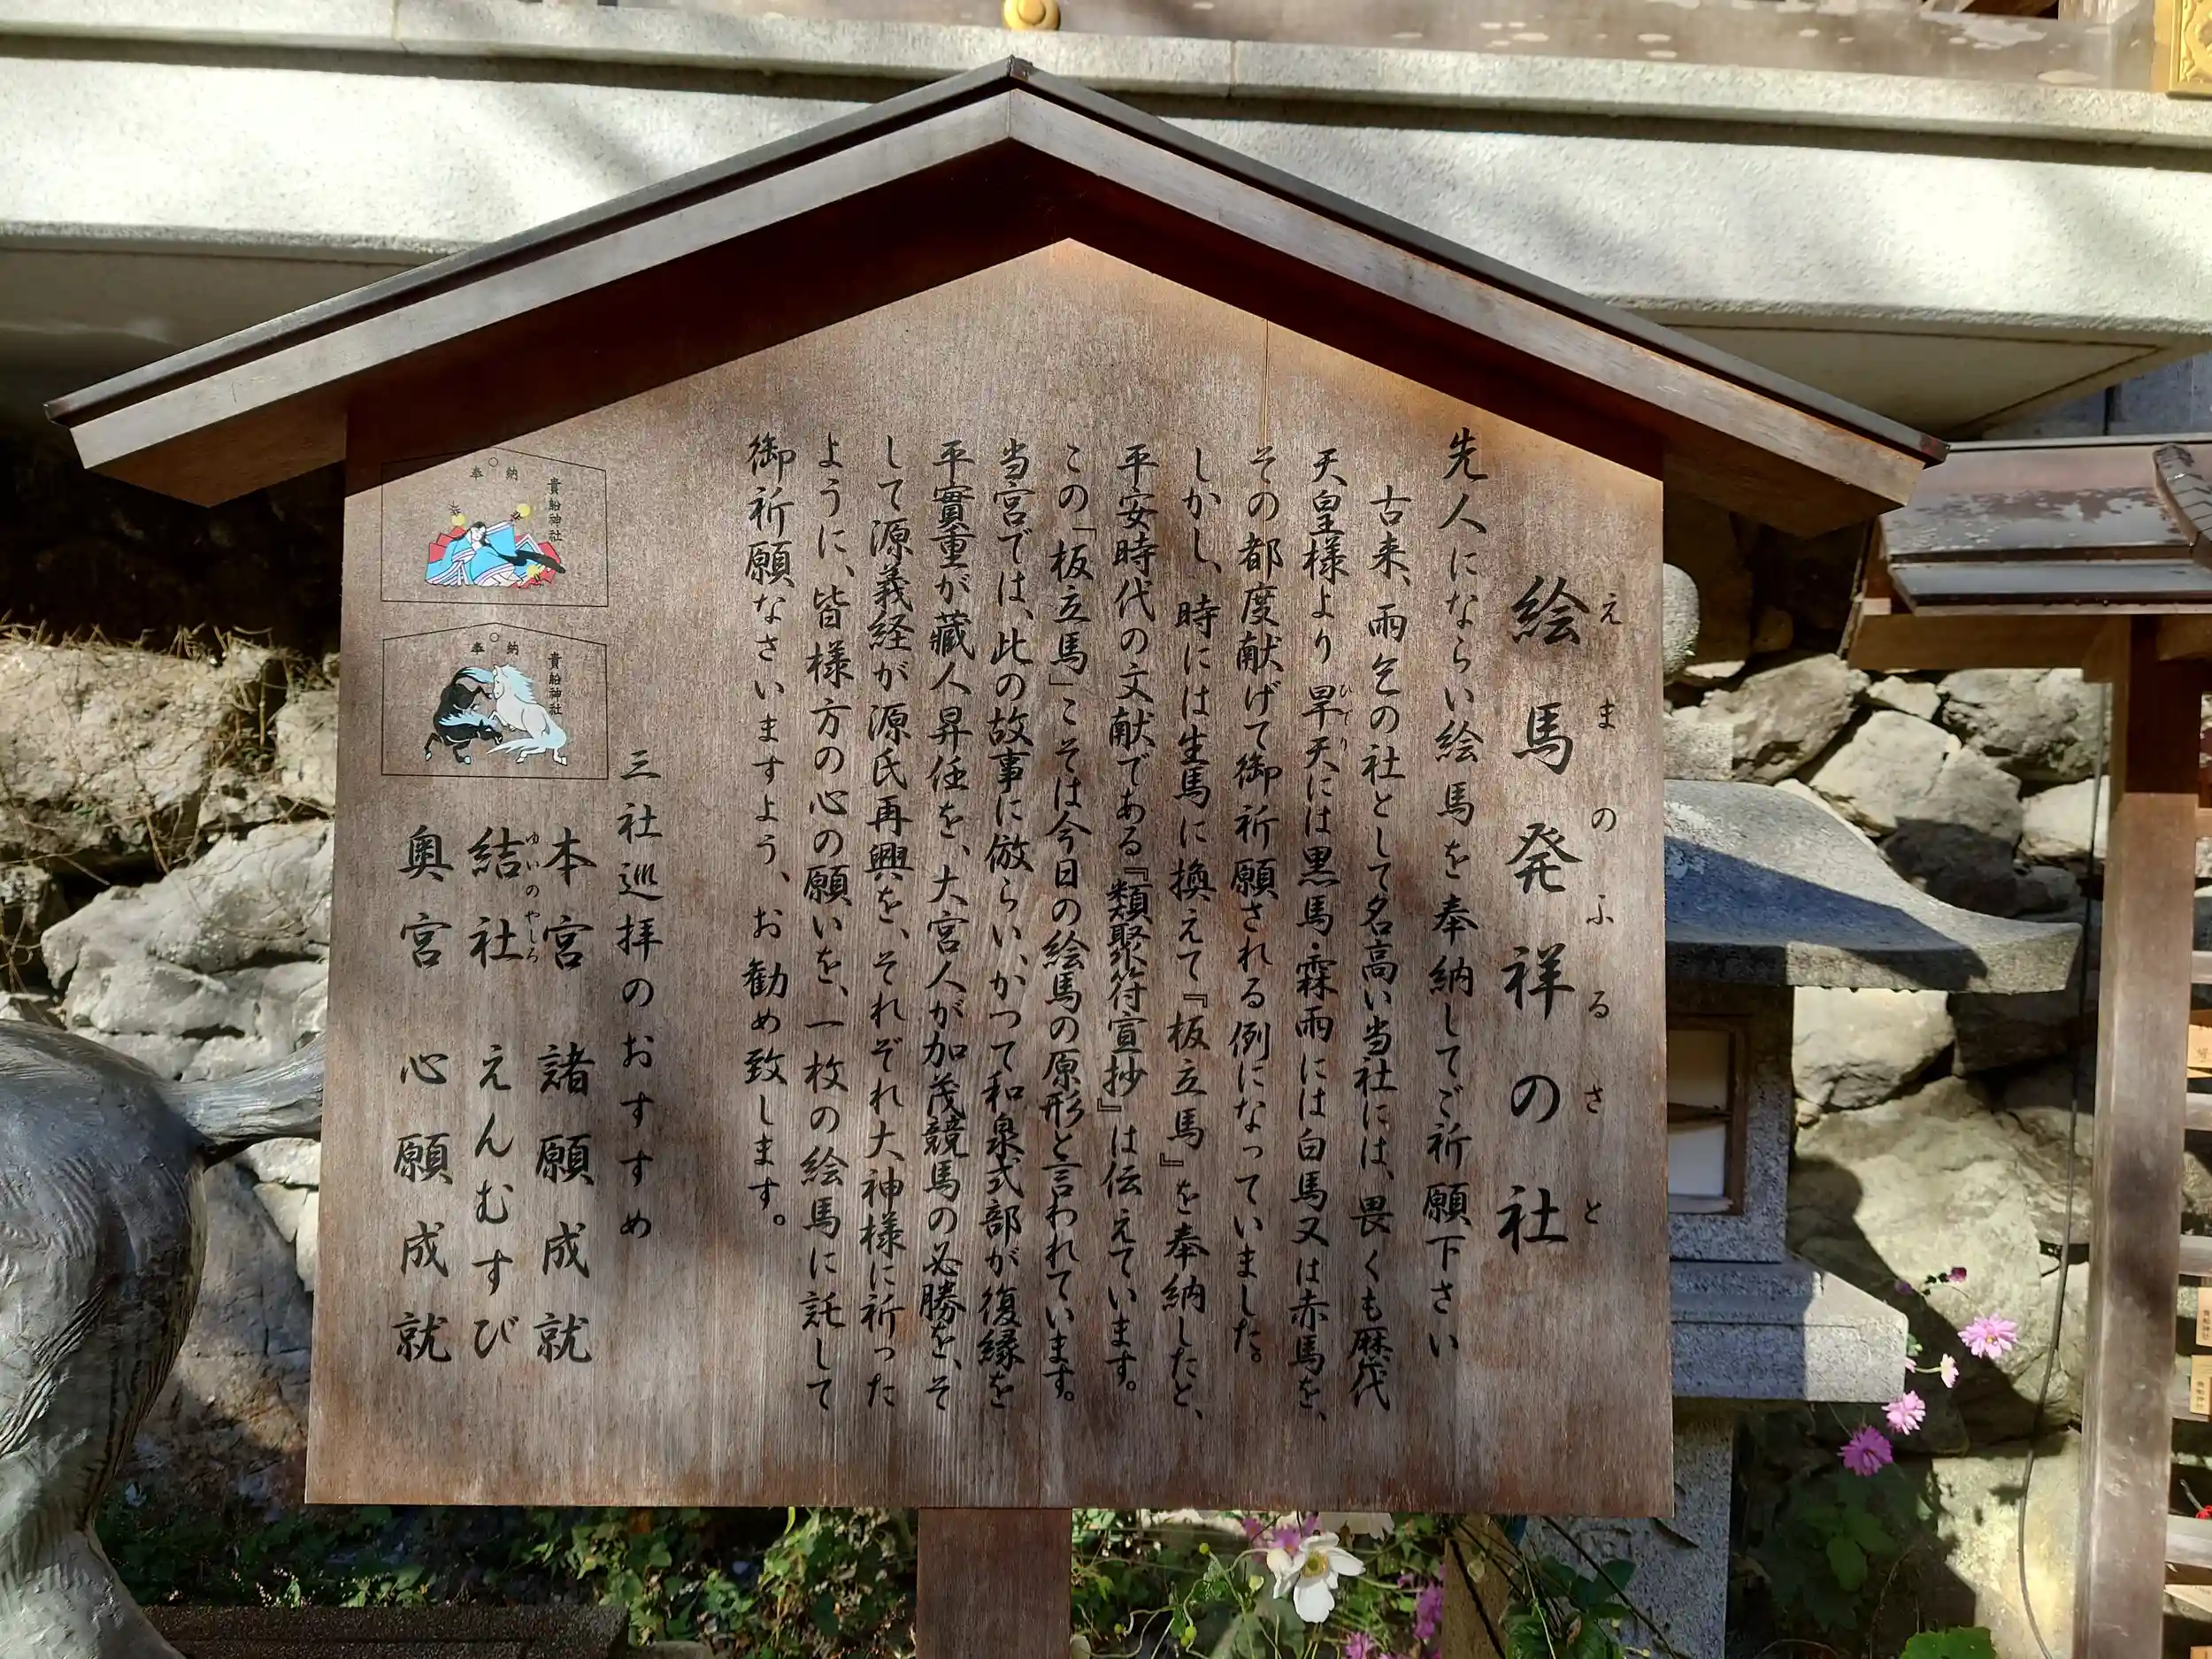 絵馬発祥の社
えまのふるさと
先人にならい絵馬を奉納してご祈願下さい
古来、雨乞の社として名高い当社には、畏くも歴代
天皇様より旱天には黒馬霖雨には白馬又は赤馬を、
ひでり
その都度献げて御祈願される例になっていました。
しかし、時には生馬に換えて『板立馬』を奉納したと、
平安時代の文献である『類聚符宣抄』は伝えています。
この「板立馬」こそは今日の絵馬の原形と言われています。
当宮では、此の故事に倣らい、かつて和泉式部が復縁を
平實重が蔵人昇任を、大宮人が加茂競馬の必勝を、そ
して源義経が源氏再興を、それぞれ大神様に祈った
ように、皆様方の心の願いを、一枚の絵馬に託して
御祈願なさいますよう、お勧め致します。
三社巡拝のおすすめ
本宮 諸願成就
結社 えんむすび
ゆいのやしろ
奥宮 心願成就
奉納
貴船神社
奉納
貴船神社